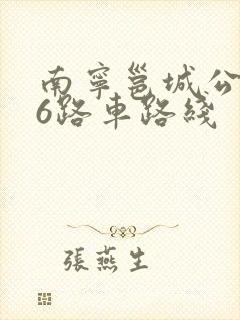 南寧邕城公
6路車路綫
張燕生